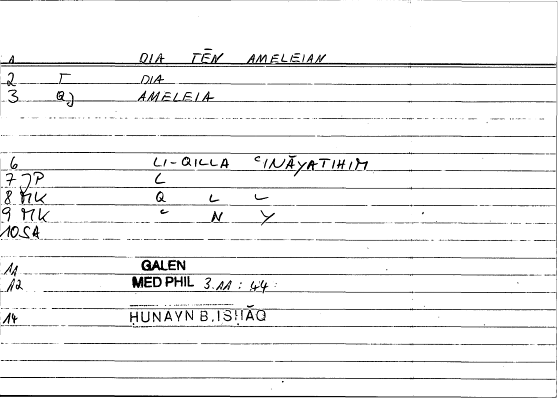 1 DIA TĒN AMELEIAN
2 T DIA
3 Qj AMELEIA
6 LI-QILLA ʿINĀYATIHIM
7 JP L
8 MK Q L L
9 MK ʿ N Y
10 SA
11 GALEN
12 MED PHIL 3.11 : 44
14 ḤUNAYN B. ISḤĀQ